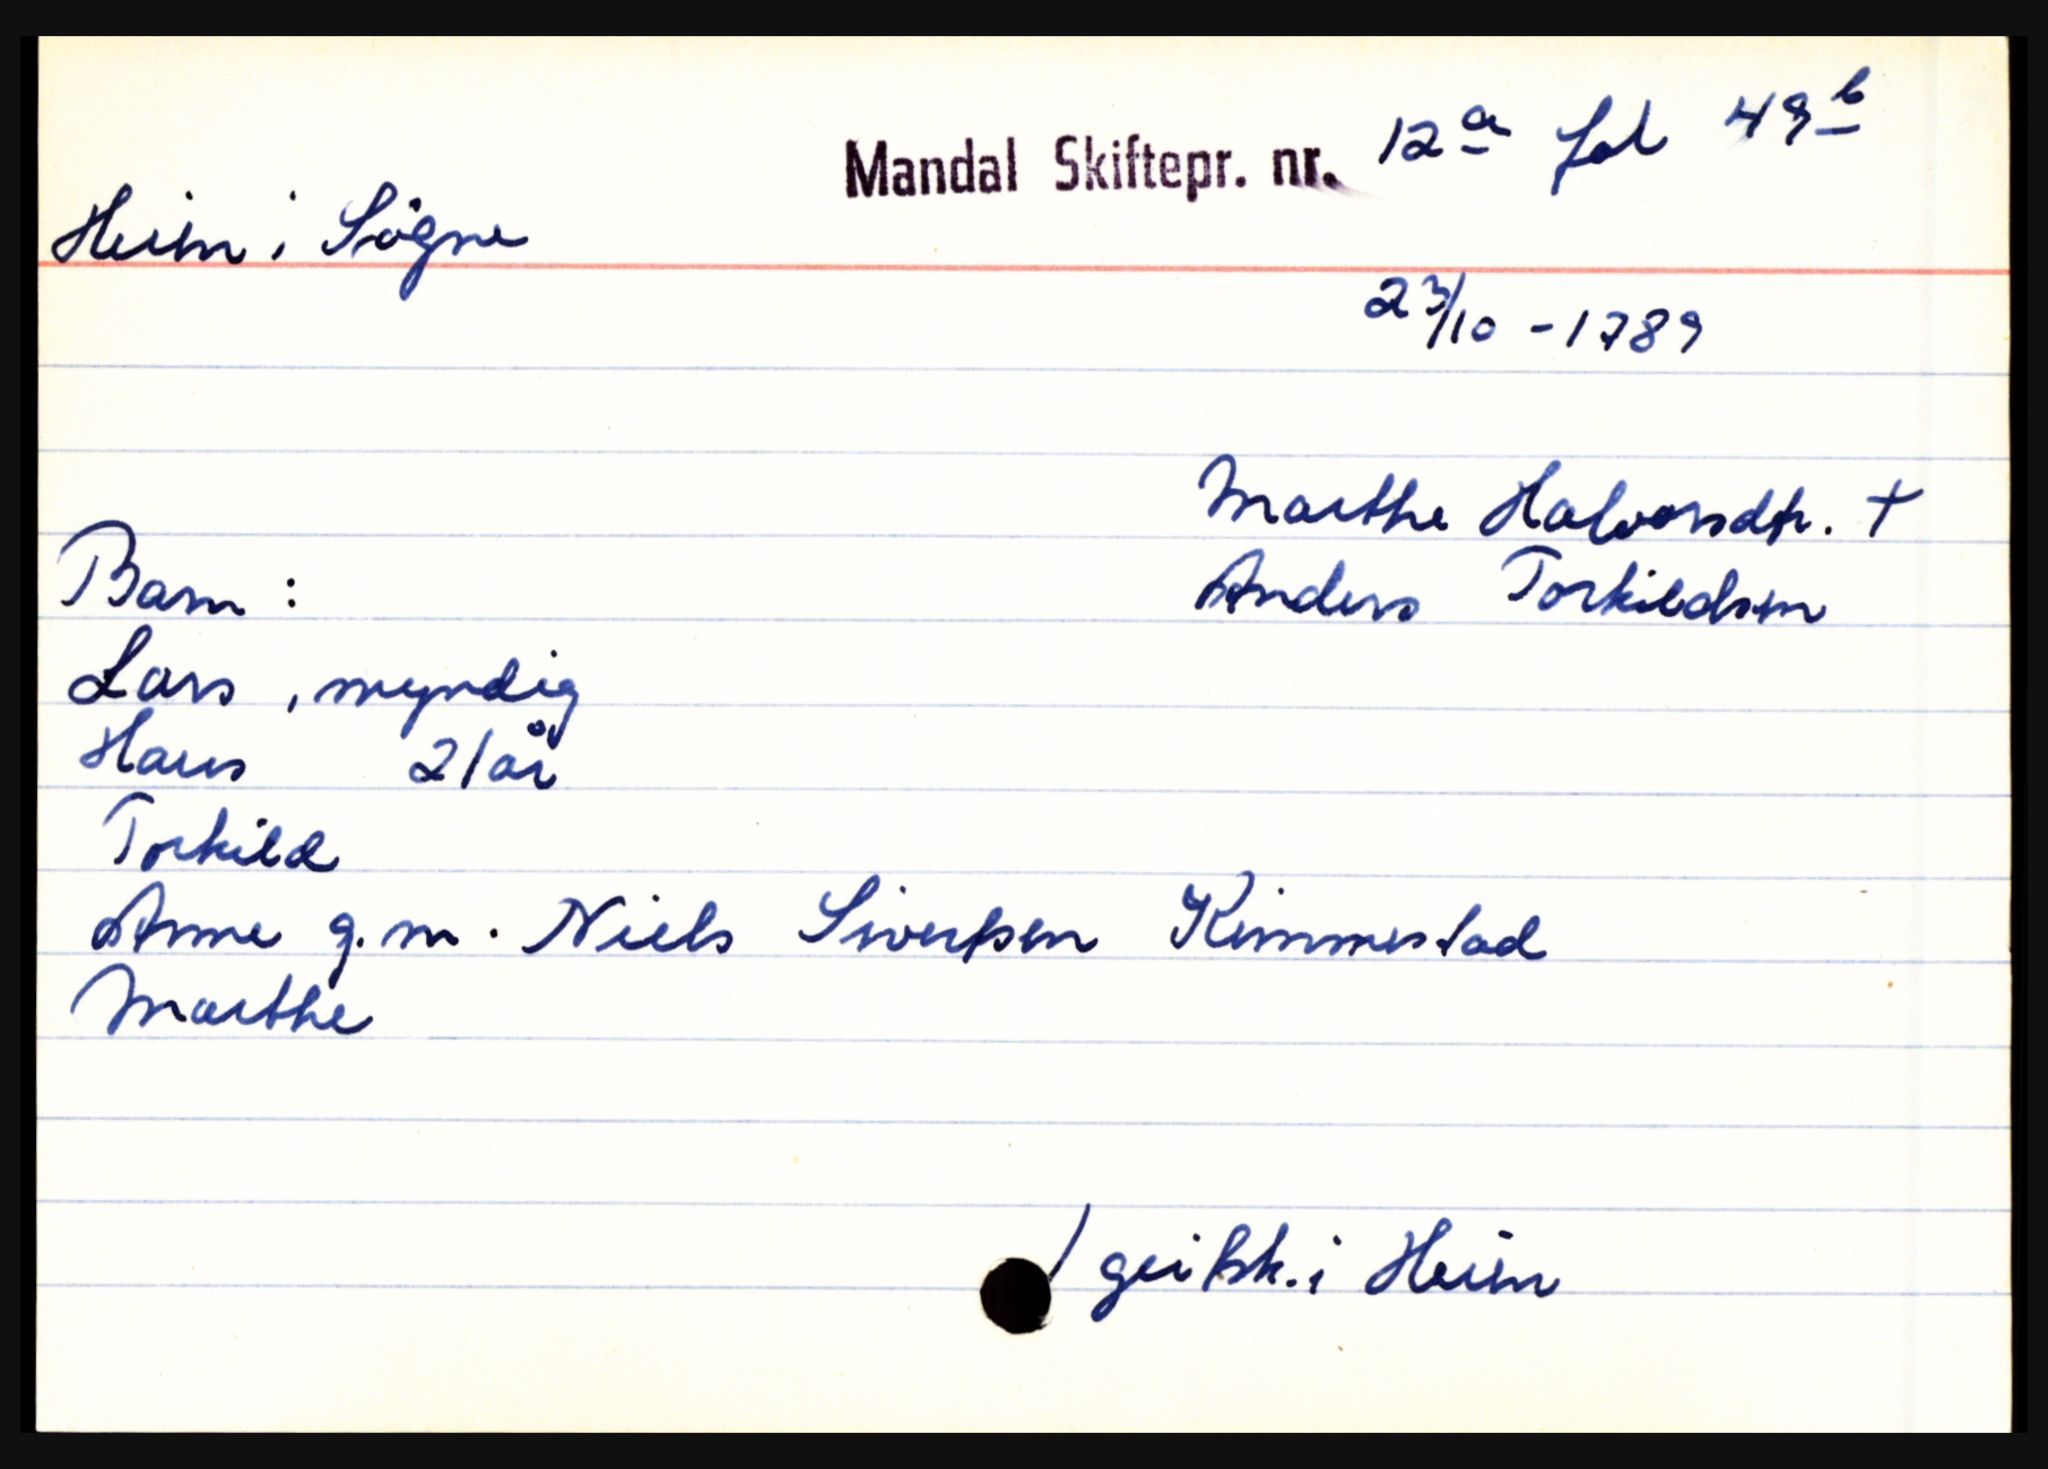 Mandal Skiftepr. nr. 12a fol 49b
Heim i Søgne
23/10 - 1789
Marthe Halvorsdtr. †
Anders Torkildsen
Barn :
Lars , myndig
Hans 21 år
Torkild
Anne g. m. Niels Siverssen Kimmestad
Marthe
i Heim